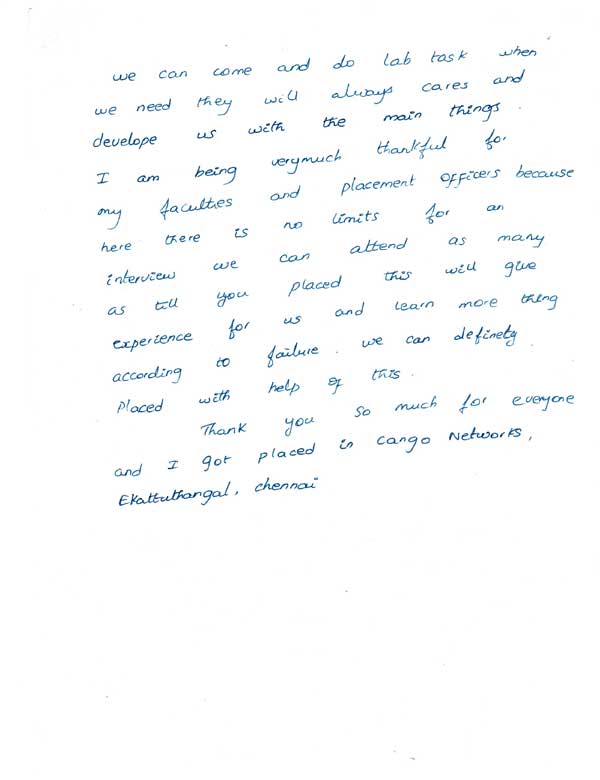 we can come and do lab task when
we need they will always cares and
develope us with the main things.
I am being verymuch thankful for
my faculties and placement officers because
here there is no limits for an
interview we can attend as many
as till you placed this will give
experience for us and learn more thing
according to failure. we can definety
placed with help of this.
Thank you so much for everyone
and I got placed in Cango Networks,
Ekattuthangal, chennai